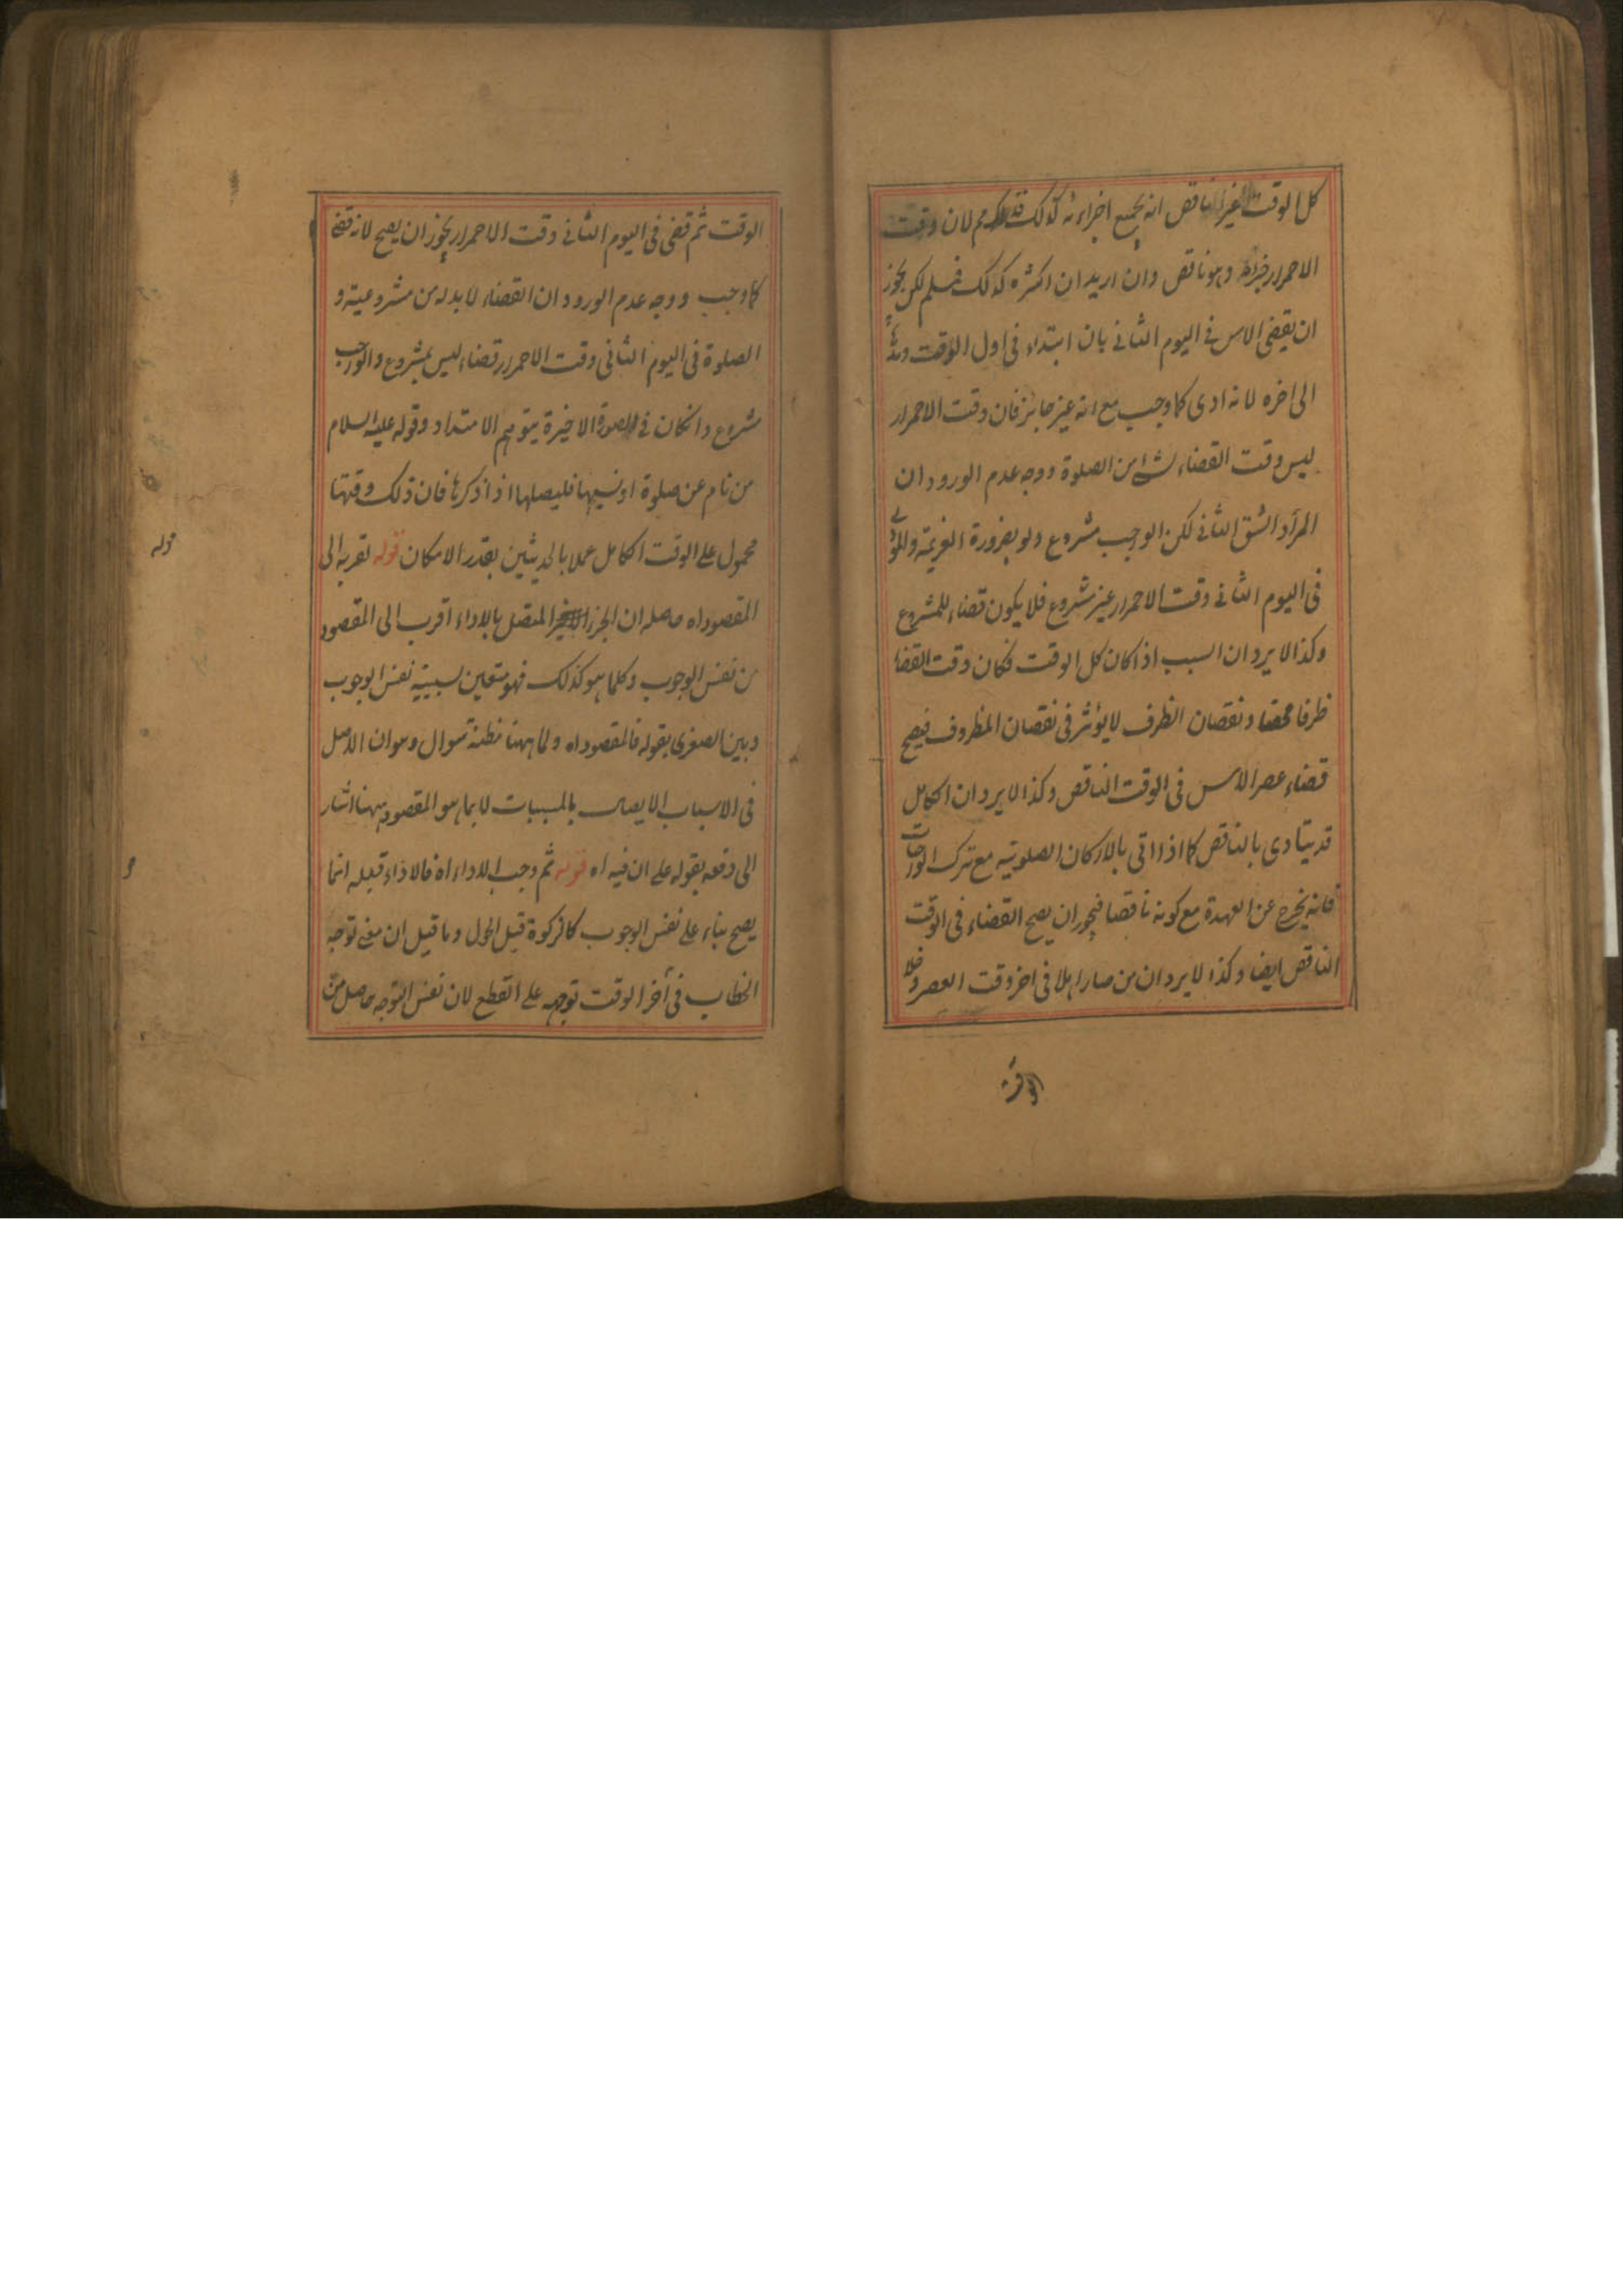 كل الوقت الغير الناقص انه بجميع اجزاءه كذلك فمم لان وقت
الاحمرار جزءه وهو ناقص وان اريد ان اكثره كذلك فسلم لكن يجوز
ان يقضى الامس فى اليوم الثانى بان ابتداء فى اول الوقت ومده
الى اخره لانه ادى كما وجب مع انه غير جائز فان وقت الاحمرار
ليس وقت القضاء لشئ من الصلوة ووجه عدم الورود ان
المراد الشق الثانى لكن الواجب مشروع ولو بضرورة العزيمة والمودى
فى اليوم الثانى وقت الاحمرار غير مشروع فلا يكون قضاء للمشروع
وكذا لا يرد ان السبب اذا كان كل الوقت فكان وقت القضا
ظرفا محضا ونقصان الظرف لا يؤثر فى نقصان المظروف فيصح
قضاء عصر الامس فى الوقت الناقص وكذا لا يرد ان الكامل
قد يتادى بالناقص كما اذا اتى بالاركان الصلوتية مع ترك الواجبات
فانه يخرج عن العهدة مع كونه ناقصا فيجوز ان يصح القضاء فى الوقت
الناقص ايضا وكذا لا يرد ان من صار اهلا فى اخر وقت العصر وخلا
الوقت
الوقت ثم قضى فى اليوم الثانى وقت الاحمرار يجوز ان يصح لانه قضى
كما وجب ووجه عدم الورود ان القضاء لا بد له من مشروعية و
الصلوة فى اليوم الثانى وقت الاحمرار قضاء ليس بمشروع والواجب
مشروع وانكان فى الصورة الاخيرة بتوهم الامتداد وقوله عليه السلام
من نام عن صلوة او نسيها فليصلها اذا ذكرها فان ذلك وقتها
محمول على الوقت الكامل عملا بالحديثين بقدر الامكان قوله لقربه الى
المقصود اه حاصله ان الجزء المتصل بالاداء اقرب الى المقصود
من نفس الوجوب وكلما هو كذلك فهو متعين لسببية نفس الوجوب
وبين الصغرى بقوله فالمقصود اه ولما ههنا مظنة سوال وهو ان الاصل
فى الاسباب الايصال بالمسببات لا بما هو المقصود ههنا اشار
الى دفعه بقوله على ان فيه اه قوله ثم وجب الاداء اه فالاداء قبله انما
يصح بناء على نفس الوجوب كالزكوة قبل الحول وما قيل ان معنى توجه
الخطاب فى آخر الوقت توجهه على القطع لان نفس التوجه حاصل من
قوله